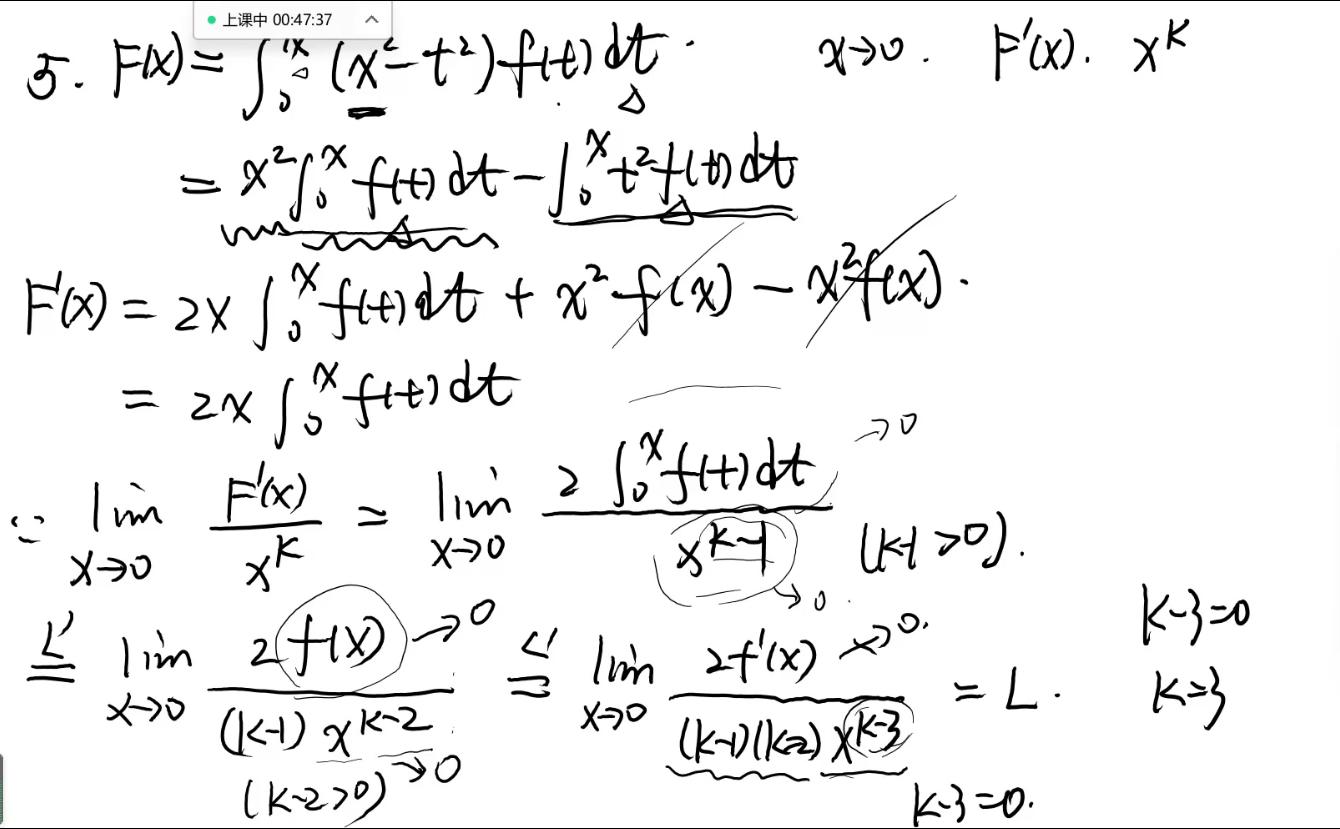 上课中 00:47:37
5. F(x) = ∫₀ˣ (x² - t²) f(t) dt . x→0 . F'(x) . x^k
= x² ∫₀ˣ f(t) dt - ∫₀ˣ t² f(t) dt
F'(x) = 2x ∫₀ˣ f(t) dt + x² f(x) - x² f(x) .
= 2x ∫₀ˣ f(t) dt
∵ lim_{x→0} F'(x) / x^k = lim_{x→0} 2 ∫₀ˣ f(t) dt / x^{k-1} →0 →0 . (k-1 >0) .
L' = lim_{x→0} 2 f(x) / (k-1) x^{k-2} →0 →0 (k-2>0) L' = lim_{x→0} 2f'(x) / (k-1)(k-2) x^{k-3} = L . k-3=0
k=3
k-3=0.